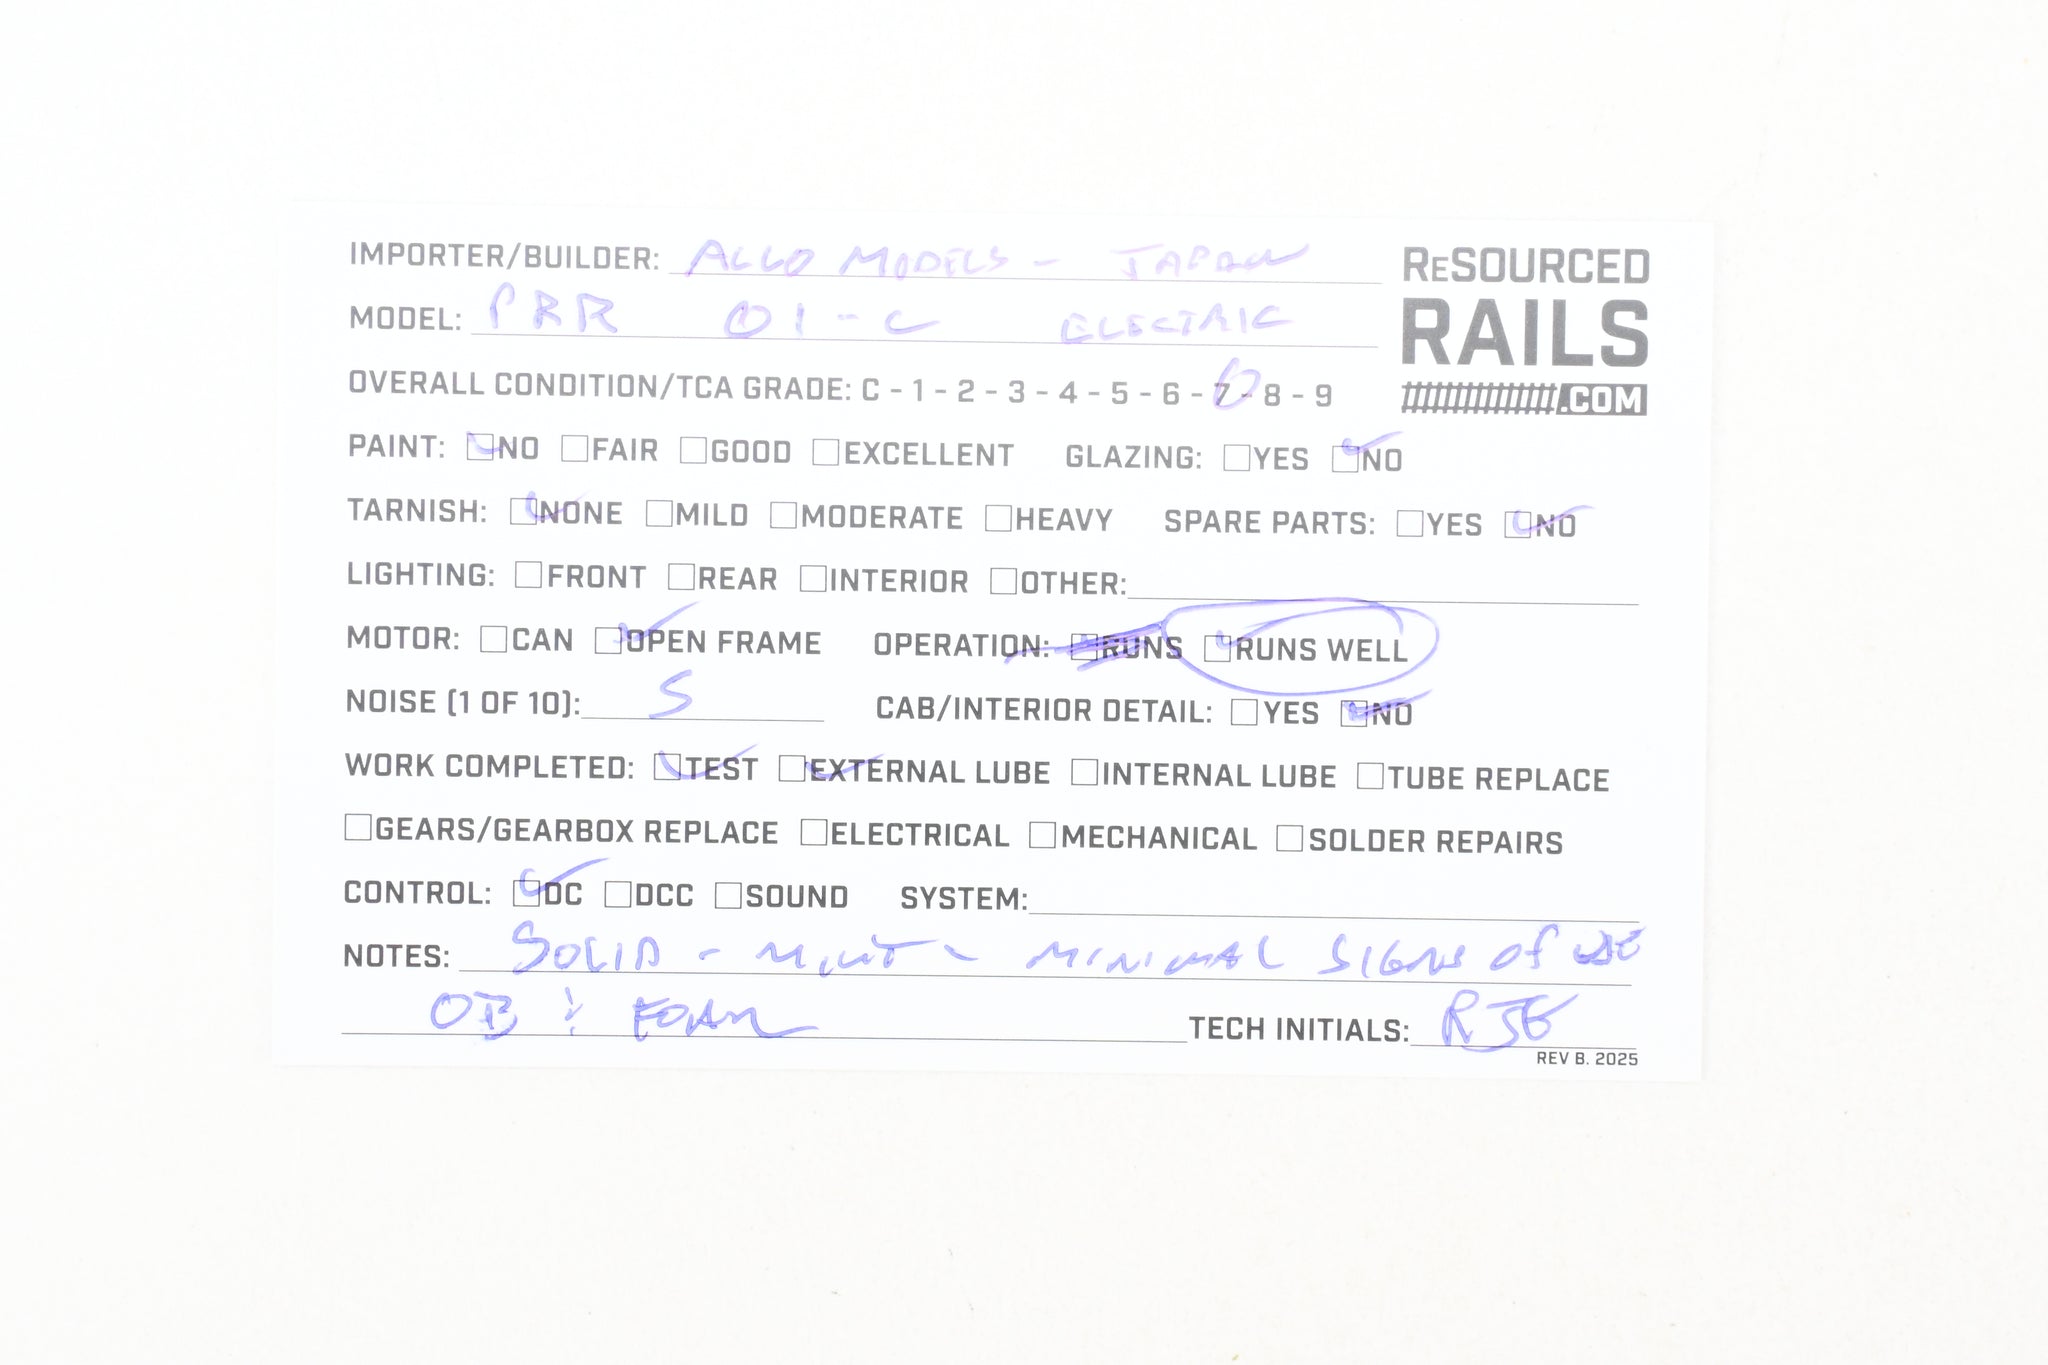 IMPORTER/BUILDER: ALCO MODELS - JAPAN
ReSOURCED
RAILS
.COM
MODEL: PRR O1-C ELECTRIC
OVERALL CONDITION/TCA GRADE: C - 1 - 2 - 3 - 4 - 5 - 6 - 7 - 8 - 9
PAINT: NO FAIR GOOD EXCELLENT GLAZING: YES NO
TARNISH: NONE MILD MODERATE HEAVY SPARE PARTS: YES NO
LIGHTING: FRONT REAR INTERIOR OTHER:
MOTOR: CAN OPEN FRAME OPERATION: RUNS RUNS WELL
NOISE (1 OF 10): 5 CAB/INTERIOR DETAIL: YES NO
WORK COMPLETED: TEST EXTERNAL LUBE INTERNAL LUBE TUBE REPLACE
GEARS/GEARBOX REPLACE ELECTRICAL MECHANICAL SOLDER REPAIRS
CONTROL: DC DCC SOUND SYSTEM:
NOTES: SOLID - MINT - MINIMAL SIGNS OF USE
OB & FOAM TECH INITIALS: RJE
REV B. 2025